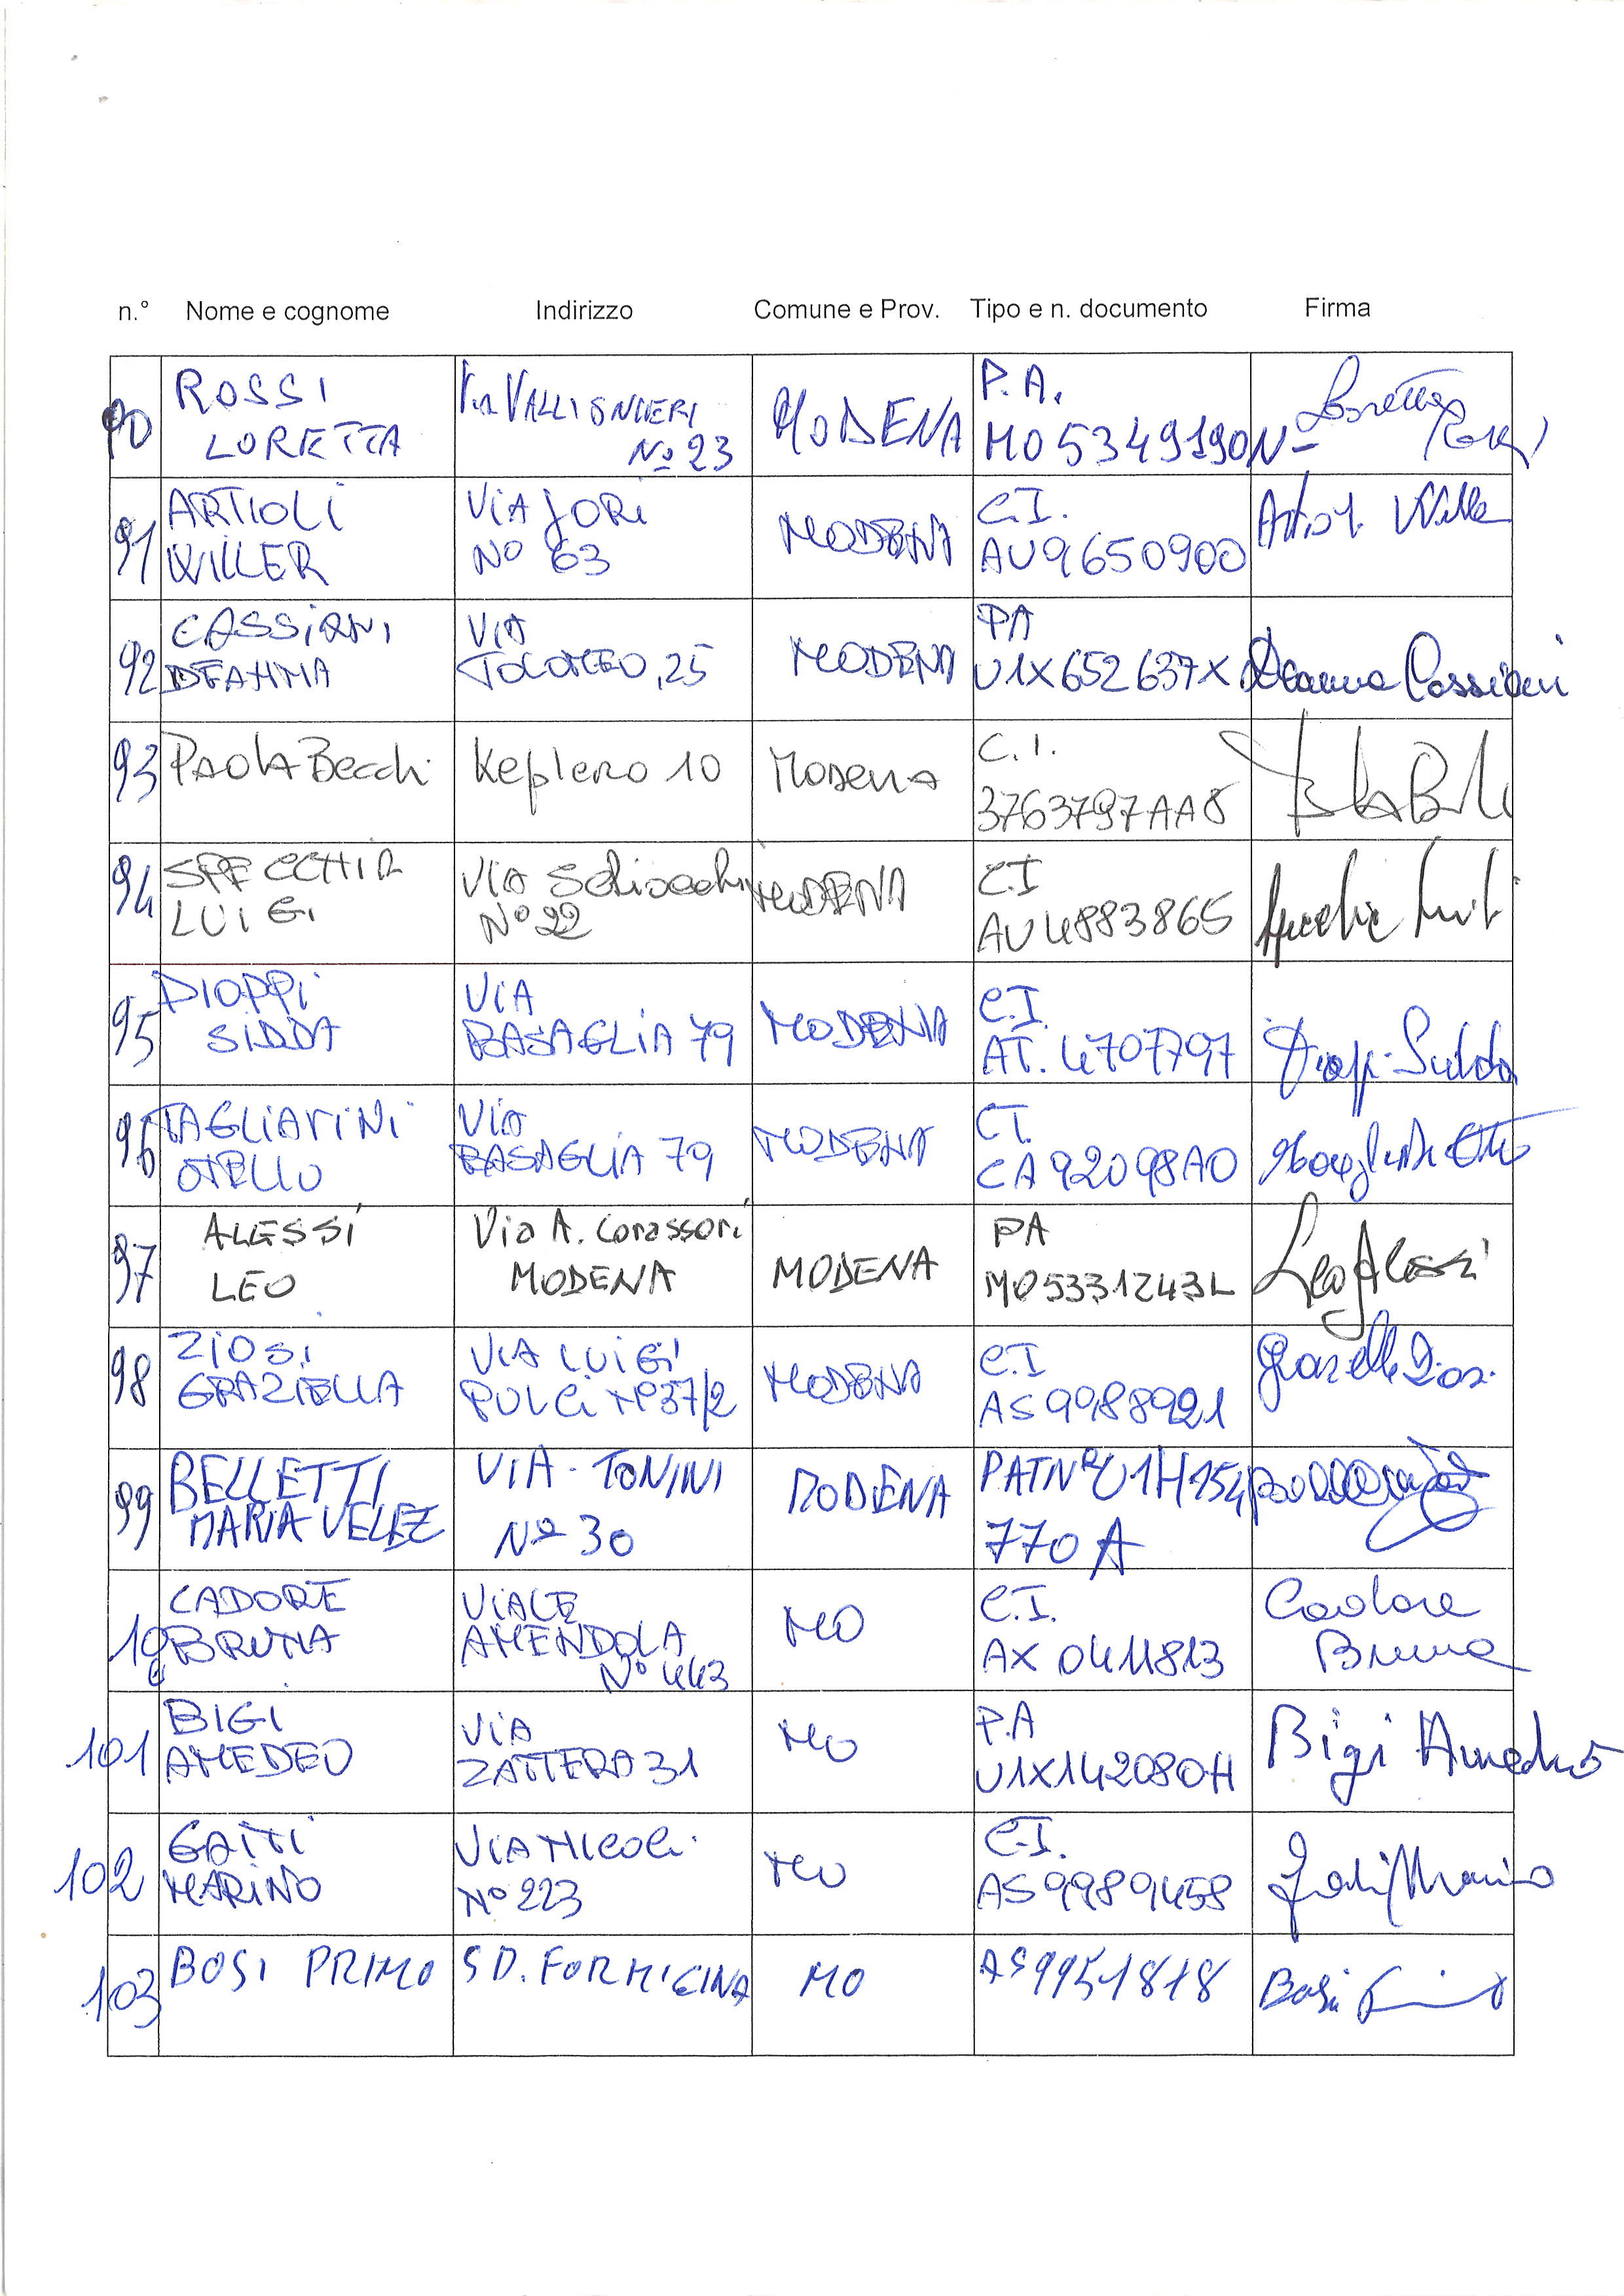 n.° Nome e cognome Indirizzo Comune e Prov. Tipo e n. documento Firma
90 ROSSI LORETTA Via VALLISNIERI N° 23 MODENA P.A. MO5349190N Loretta Rossi
91 ARTIOLI WILLER VIA JORI N° 63 MODENA C.I. AU9650900 Willer
92 CASSIANI DEANNA VIA TOLOMEO, 25 MODENA PA U1X652637X Deanna Cassiani
93 PAOLA Becchi Keplero 10 Modena C.I. 3763797AA8
94 LUIGI VIA Schiocchi N° 22 MODENA C.I AU4883865
95 DIOPPI SIDDA VIA BASAGLIA 79 MODENA C.I. AT. 4707797
96 TAGLIAVINI OTELLO VIA BASAGLIA 79 MODENA C.I. CA92098AO
97 ALESSI LEO Via A. Corassori MODENA MODENA PA MO5331243L Leo Alessi
98 ZIOSI GRAZIELLA VIA LUIGI PULCI N° 37/2 MODENA C.I AS9988921 Graziella Ziosi
99 BELLETTI MARIA VELEZ VIA TONINI N° 30 MODENA PAT N° U1H154 770 A
100 CADORE BRUNA VIALE AMENDOLA N° 443 MO C.I. AX 0411813 Cadore Bruna
101 BIGI AMEDEO VIA ZATTERA 31 MO P.A U1X142080H Bigi Amedeo
102 GAITI MARINO VIA NICOLI N° 223 MO C.I. AS9989458 Marino
103 BOSI PRIMO S D. FORMIGINA MO AS9951818 Bosi Primo